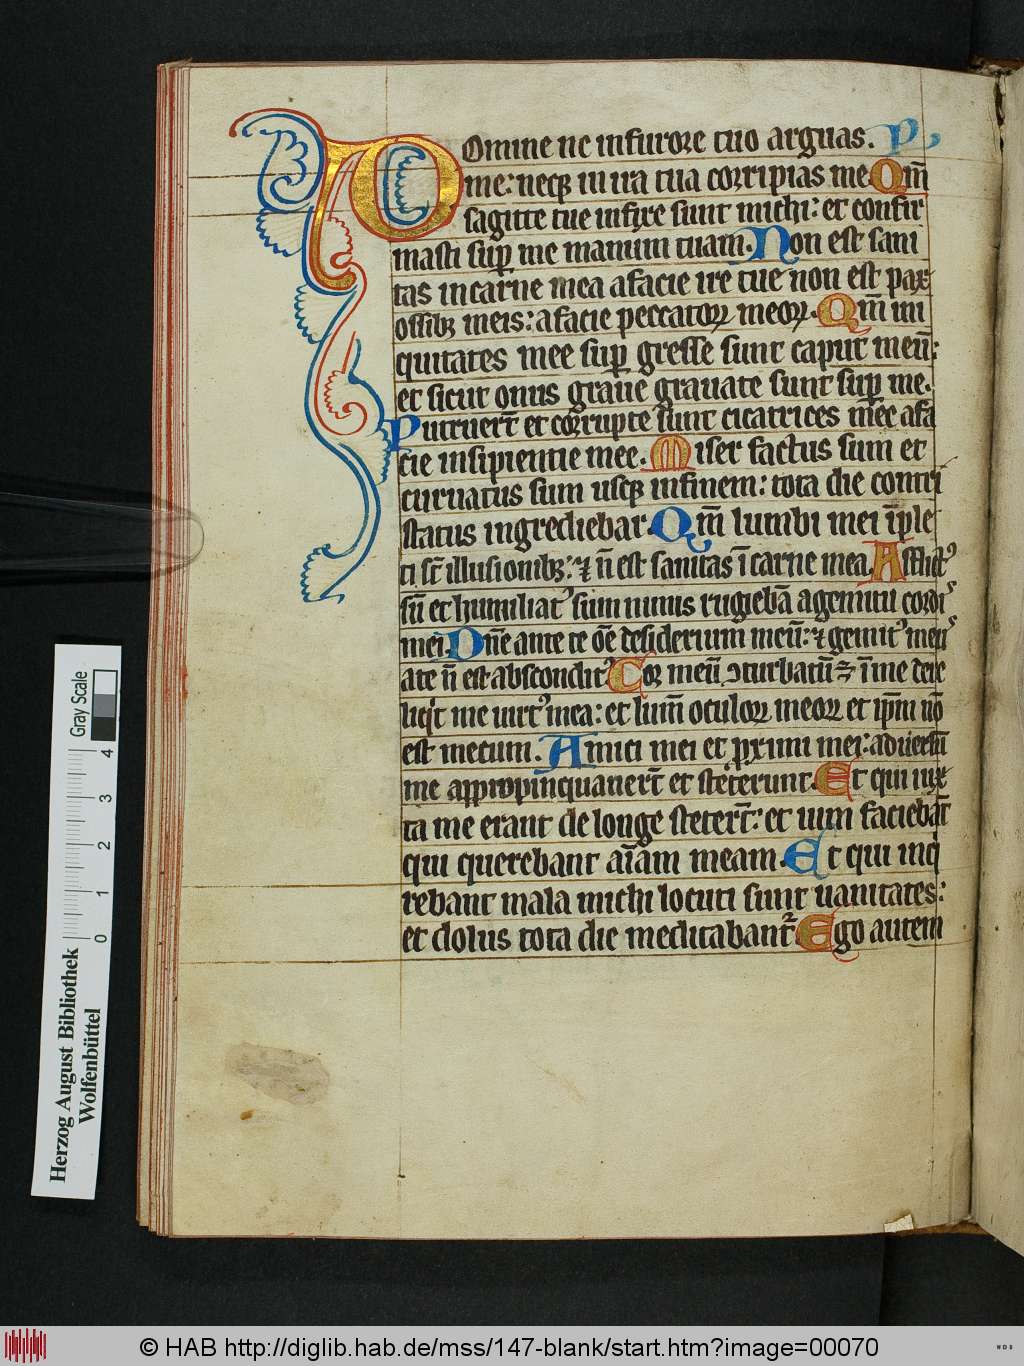 Domine ne in furore tuo arguas. P̕
me: neq; in ira tua corripias me. Qm̄
sagitte tue infixe sunt michi: et confir
masti sup̱ me manum tuam. Non est sani
tas in carne mea a facie ire tue non est pax
ossib; meis: a facie peccatoꝝ meoꝝ. Qm̄ ini
quitates mee sup̱ gresse sunt caput meū:
et sicut onus graue grauate sunt sup̱ me.
Putruer̄t et corrupte sunt cicatrices mee a fa
cie insipientie mee. Miser factus sum et
curuatus sum usq; in finem: tota die contri
status ingrediebar. Qm̄ lumbi mei īple
ti sт̄ illusionib;: ⁊ n̄ est sanitas ī carne mea. Afflict᾿
sū et humiliat᾿ sum nimis rugiebā a gemitu cordis
mei. Dn̄e ante te oē desiderium meū: ⁊ gemit᾿ meus
a te n̄ est abscondit᾿. Cor meū ↄturbatū ē ī me dere
liqͥt me uirt᾿ mea: et lum̄ oculoꝝ meoꝝ et ip̄m nō
est mecum. Amici mei et p̱ximi mei: aduersū
me appropinquauer̄t et steterunt. Et qui iux
ta me erant de longe steter̄t: et uim faciebāt
qui querebant aīam meam. Et qui inqͥ
rebant mala michi locuti sunt uanitates:
et dolus tota die meditabant᷑. Ego autem
Herzog August Bibliothek
Wolfenbüttel
Gray Scale
0 1 2 3 4
© HAB http://diglib.hab.de/mss/147-blank/start.htm?image=00070